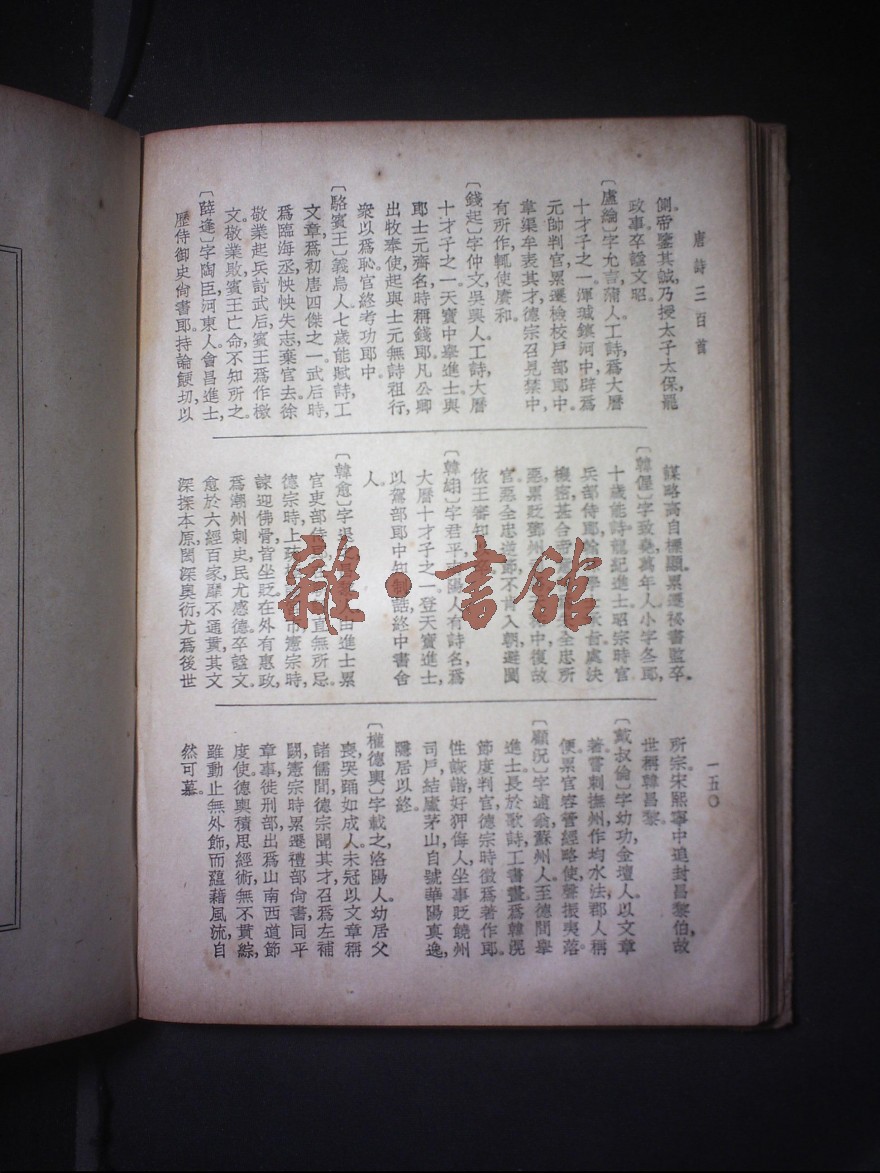 唐詩三百首
側。帝鑒其誠，乃授太子太保，罷
政事。卒，謚文昭。
〔盧綸〕字允言，蒲人。工詩，爲大曆
十才子之一。渾瑊鎮河中，辟爲
元帥判官，累遷檢校戶部郎中。
韋渠牟表其才，德宗召見禁中，
有所作，輒使賡和。
〔錢起〕字仲文，吳興人。工詩，大曆
十才子之一。天寶中舉進士，與
郎士元齊名，時稱錢郎。凡公卿
出牧奉使，起與士元無詩祖行，
衆以爲恥。官終考功郎中。
〔駱賓王〕義烏人。七歲能賦詩，工
文章，爲初唐四傑之一。武后時，
爲臨海丞，怏怏失志，棄官去。徐
敬業起兵討武后，賓王爲作檄
文。敬業敗，賓王亡命，不知所之。
〔薛逢〕字陶臣，河東人。會昌進士，
歷侍御史，尙書郎。持論鯁切，以
謀略高自標顯，累遷秘書監卒。
〔韓偓〕字致堯，萬年人。小字冬郎，
十歲能詩。龍紀進士。昭宗時，官
兵部侍郎，翰學承旨。處決
機密，甚合帝全忠所
惡，累貶鄧州中復故
官。惡全忠逆節，不肯入朝，避閩
依王審知
〔韓翃〕字君平，陽人。有詩名，爲
大曆十才子之一。登天寶進士，
以駕部郎中知制誥，終中書舍
人。
〔韓愈〕字退由進士累
官吏部侍直無所忌。
德宗時，上疏市，憲宗時，
諫迎佛骨，皆坐貶。在外有惠政，
爲潮州刺史，民尤感德。卒，謚文。
愈於六經百家，靡不通貫，其文
深探本原，閎深奧衍，尤爲後世
一五〇
所宗。宋熙寧中，追封昌黎伯，故
世稱韓昌黎。
〔戴叔倫〕字幼功，金壇人。以文章
著。嘗刺撫州，作均水法，郡人稱
便。累官容管經略使，聲振夷落。
〔顧況〕字逋翁，蘇州人。至德間舉
進士。長於歌詩，工書畫。爲韓滉
節度判官。德宗時，徵爲著作郎。
性詼諧，好狎侮人，坐事貶饒州
司戶。結廬茅山，自號華陽真逸，
隱居以終。
〔權德輿〕字載之，洛陽人。幼居父
喪，哭踊如成人。未冠，以文章稱
諸儒間。德宗聞其才，召爲左補
闕。憲宗時，累遷禮部尙書，同平
章事，徙刑部，出爲山南西道節
度使。德輿積思經術，無不貫綜，
雖動止無外飾，而蘊藉風流，自
然可慕。
雜·書館